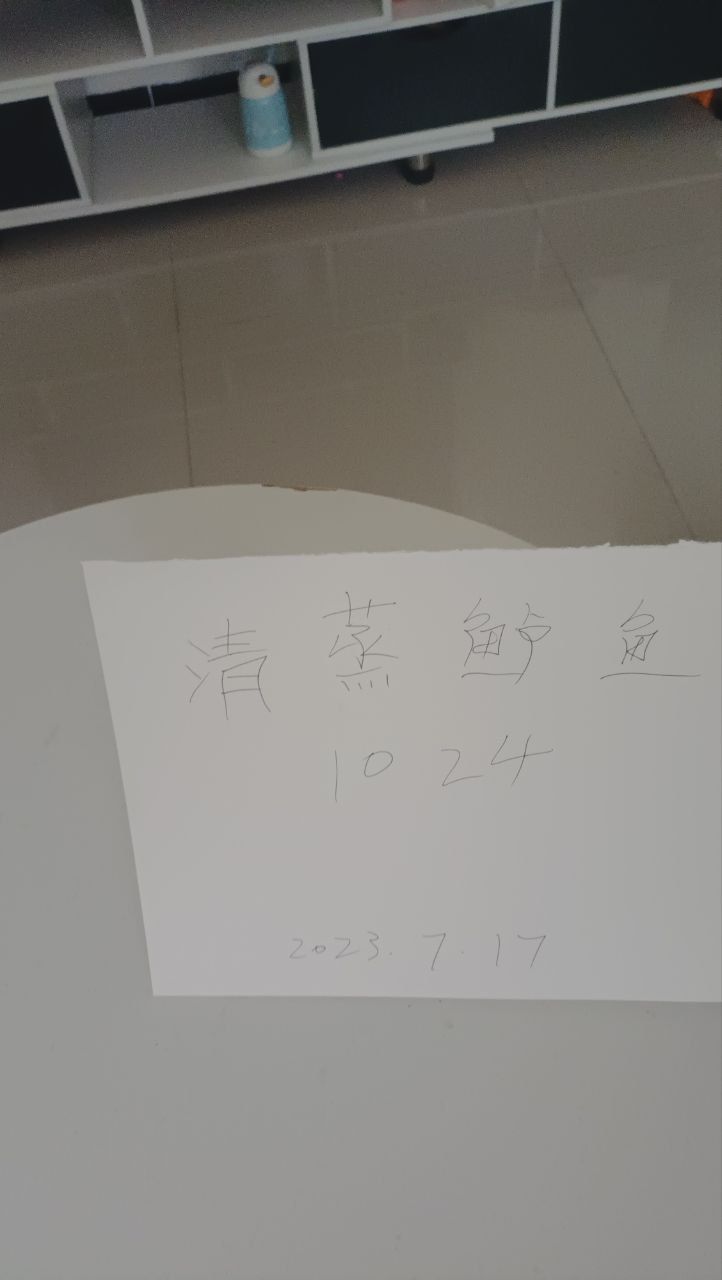 清蒸鲈鱼
1024
2023.7.17